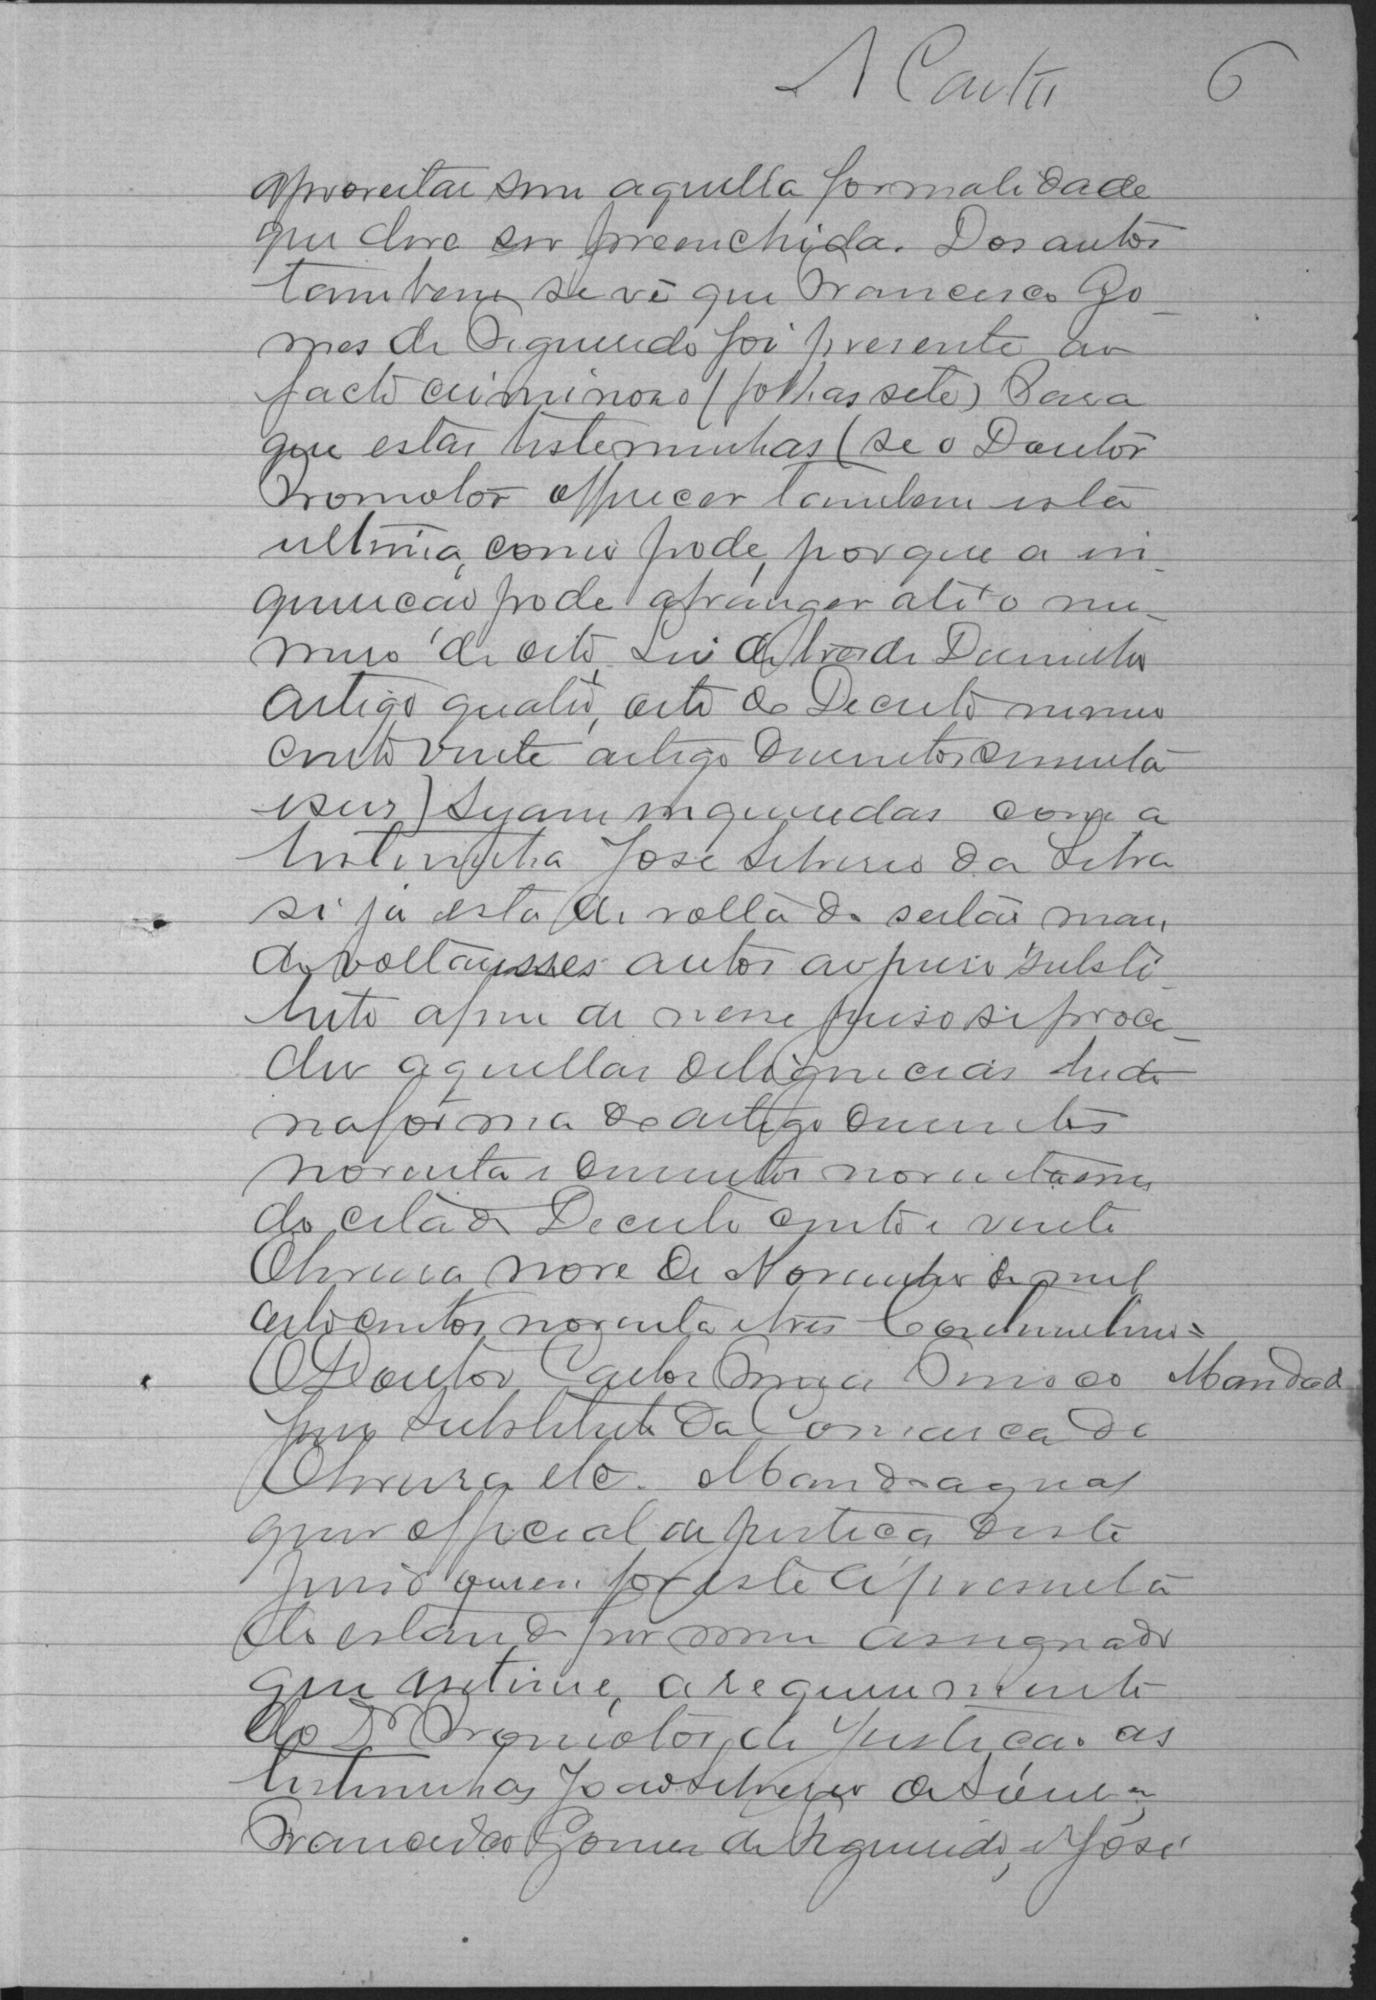 6
aproveitar sem aquella formalidade
que deve ser preenchida. Dos autos
tambem se vê que Francisco Go-
mes de Figueredo foi presente ao
facto criminoso (folhas sete) Para
que estas testemunhas (se o Doutor
Promotor offrecer tambem esta
ultima, como pode, porque a in-
quirição pode abranger até o nu-
mero de oito, Lei de tres de Dezembro
artigo quatro, oito do Decreto numero
cento vinte artigo duzentos sessenta
e seis) sejam inqueridas com a
testemunha José Silverio da Silva
si já está de volta do sertão man
do voltar esses autos ao juiso substi-
tuto afim de nesse juiso si proce-
der aquellas deligencias tudo
na forma do artigo duzentos
noventa e duzentos noventa e
do citado Decreto cento e vinte
Oliveira nove de Novembro de mil
oitocentos noventa e tres
O Doutor Carlos
Mandado
juiz substituto da Comarca de
Oliveira etc. Mando a qual
quer official de justiça deste
juiso a quem for este apresenta
do estando por mim assignado
que intime, a requerimento
do Dr Promotor de Justiça. as
testemunhas João Silverio de
Francisco Gomes de Figueredo, e José